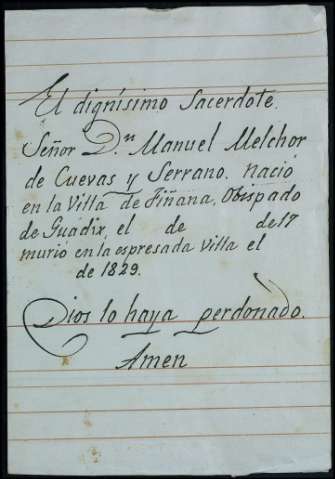 El dignísimo Sacerdote.
Señor Dn Manuel Melchor
de Cuevas y Serrano. nació
en la Villa de Fiñana, Obispado
de Guadix, el de de 17
murió en la espresada Villa el
de 1829.
Dios lo haya perdonado.
Amen